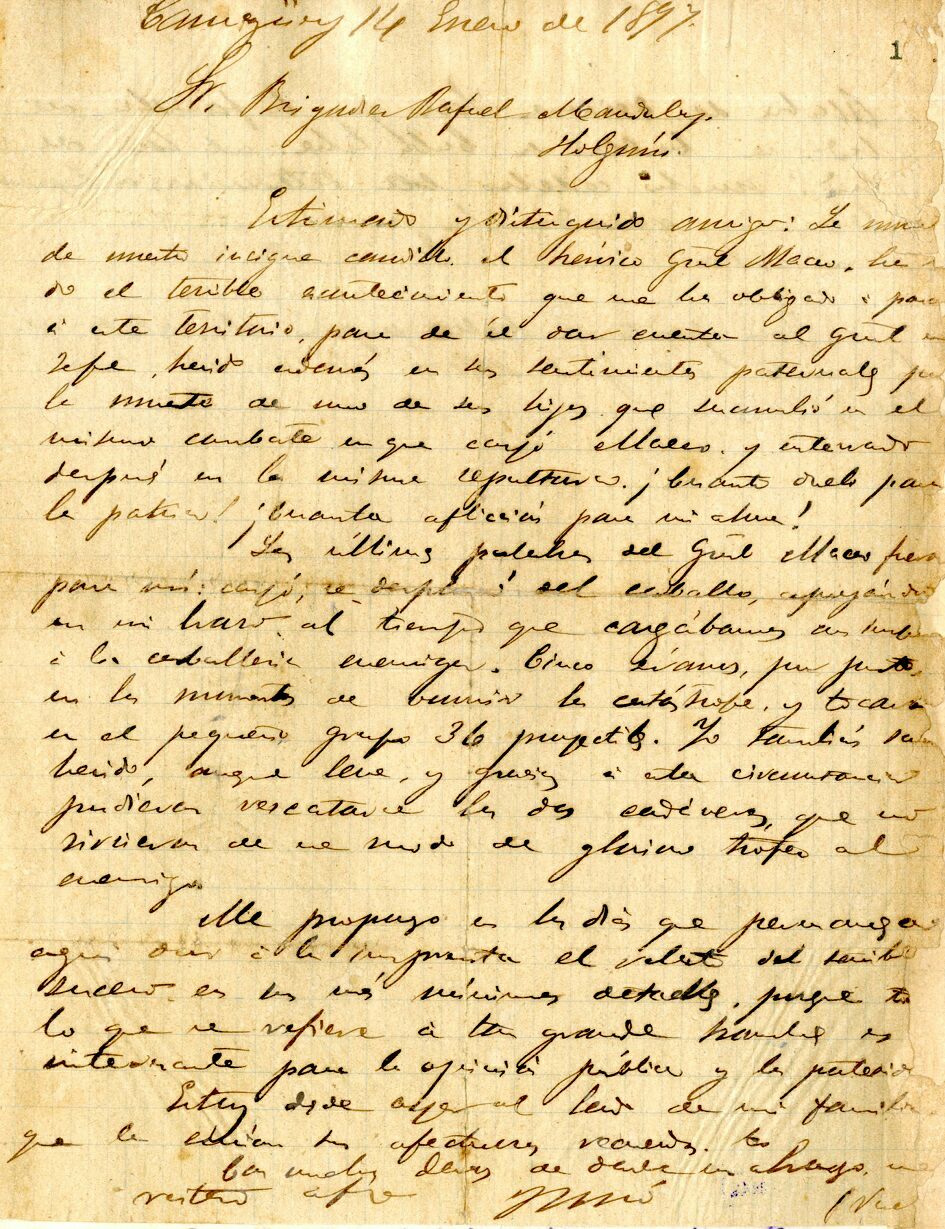 Camagüey 14 Enero de 1897.
1
Sr. Brigadier Rafael
Holguín.
Estimado y distinguido amigo: La
de nuestro insigne caudillo, el heróico Gral Maceo, ha
do el terrible acontecimiento que me ha obligado á
á este territorio, para de él dar cuenta al Gral en
Jefe, herido además en sus sentimientos paternales por
la muerte de uno de sus hijos que sucumbió en el
mismo combate en que cayó Maceo, y enterrado
después en la misma sepultura. ¡Cuanto duelo para
la patria! ¡Cuanta aflicción para mi alma!
Las últimas palabras del Gral Maceo
para mí: cayó, se desplomó del caballo, apoyándo
en mi brazo, al tiempo que cargábamos
á la caballería enemiga. Cinco éramos, por junto,
en los momentos de ocurrir la catástrofe, y tocaron
en el pequeño grupo 36 proyectiles. Yo también
herido, aunque leve, y gracias á esta circunstancia
pudieron rescatarse los dos cadáveres, que no
sirvieron de ese modo de glorioso trofeo al
enemigo.
Me propongo en los días que permanezca
aquí dar á la imprenta el relato del terrible
suceso en sus más mínimos detalles, porque
lo que se refiere á tan grande hombre es
interesante para la opinión pública y la
Estoy desde ayer al lado de mi familia
que le envían sus afectuosos recuerdos.
Con muchos deseos de darle un abrazo,
Miró